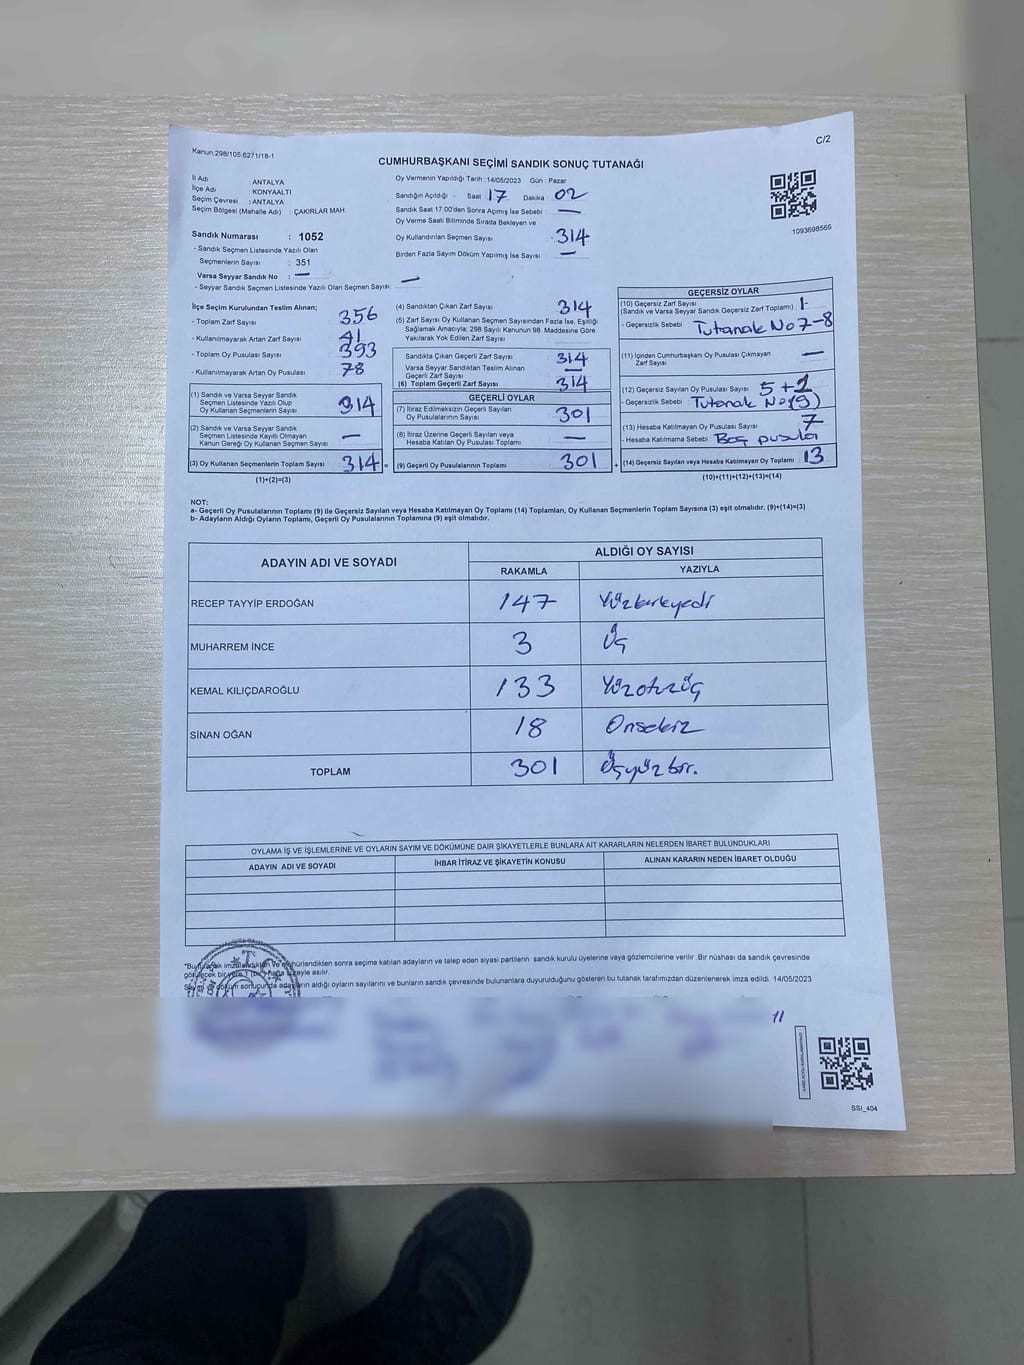 Kanun:298/105;6271/18-1
C/2
CUMHURBAŞKANI SEÇİMİ SANDIK SONUÇ TUTANAĞI
İl Adı ANTALYA
İlçe Adı KONYAALTI
Seçim Çevresi : ANTALYA
Seçim Bölgesi (Mahalle Adı) : ÇAKIRLAR MAH
Sandık Numarası : 1052
- Sandık Seçmen Listesinde Yazılı Olan
Seçmenlerin Sayısı : 351
Varsa Seyyar Sandık No : —
- Seyyar Sandık Seçmen Listesinde Yazılı Olan Seçmen Sayısı: —
Oy Vermenin Yapıldığı Tarih :14/05/2023 Gün : Pazar
Sandığın Açıldığı : Saat 17 Dakika 02
Sandık Saat 17.00'den Sonra Açımış İse Sebebi : —
Oy Verme Saati Bitiminde Sırada Bekleyen ve
Oy Kullandırılan Seçmen Sayısı : 314
Birden Fazla Sayım Döküm Yapılmış İse Sayısı : —
1093698566
İlçe Seçim Kurulundan Teslim Alınan;
- Toplam Zarf Sayısı : 356
- Kullanılmayarak Artan Zarf Sayısı : 41
- Toplam Oy Pusulası Sayısı : 393
- Kullanılmayarak Artan Oy Pusulası : 78
(1) Sandık ve Varsa Seyyar Sandık
Seçmen Listesinde Yazılı Olup
Oy Kullanan Seçmenlerin Sayısı 314
(2) Sandık ve Varsa Seyyar Sandık
Seçmen Listesinde Kayıtlı Olmayan
Kanun Gereği Oy Kullanan Seçmen Sayısı —
(3) Oy Kullanan Seçmenlerin Toplam Sayısı 314 =
(1)+(2)=(3)
(4) Sandıktan Çıkan Zarf Sayısı 314
(5) Zarf Sayısı Oy Kullanan Seçmen Sayısından Fazla İse, Eşitliği
Sağlamak Amacıyla; 298 Sayılı Kanunun 98. Maddesine Göre
Yakılarak Yok Edilen Zarf Sayısı
Sandıkta Çıkan Geçerli Zarf Sayısı 314
Varsa Seyyar Sandıktan Teslim Alınan
Geçerli Zarf Sayısı —
(6) Toplam Geçerli Zarf Sayısı 314
GEÇERLİ OYLAR
(7) İtiraz Edilmeksizin Geçerli Sayılan
Oy Pusulalarının Sayısı 301
(8) İtiraz Üzerine Geçerli Sayılan veya
Hesaba Katılan Oy Pusulası Toplamı —
(9) Geçerli Oy Pusulalarının Toplamı 301 +
GEÇERSİZ OYLAR
(10) Geçersiz Zarf Sayısı
(Sandık ve Varsa Seyyar Sandık Geçersiz Zarf Toplamı) 1
- Geçersizlik Sebebi : Tutanak No 7-8
(11) İçinden Cumhurbaşkanı Oy Pusulası Çıkmayan
Zarf Sayısı —
(12) Geçersiz Sayılan Oy Pusulası Sayısı 5+
- Geçersizlik Sebebi : Tutanak No (9)
(13) Hesaba Katılmayan Oy Pusulası Sayısı 7
- Hesaba Katılmama Sebebi : Boş pusula
(14) Geçersiz Sayılan veya Hesaba Katılmayan Oy Toplamı 13
(10)+(11)+(12)+(13)=(14)
NOT:
a- Geçerli Oy Pusulalarının Toplamı (9) ile Geçersiz Sayılan veya Hesaba Katılmayan Oy Toplamı (14) Toplamları, Oy Kullanan Seçmenlerin Toplam Sayısına (3) eşit olmalıdır. (9)+(14)=(3)
b- Adayların Aldığı Oyların Toplamı, Geçerli Oy Pusulalarının Toplamına (9) eşit olmalıdır.
ADAYIN ADI VE SOYADI
ALDIĞI OY SAYISI
RAKAMLA YAZIYLA
RECEP TAYYİP ERDOĞAN 147 Yüzkırkyedi
MUHARREM İNCE 3 Üç
KEMAL KILIÇDAROĞLU 133 Yüzotuzüç
SİNAN OĞAN 18 Onsekiz
TOPLAM 301 Üçyüzbir.
OYLAMA İŞ VE İŞLEMLERİNE VE OYLARIN SAYIM VE DÖKÜMÜNE DAİR ŞİKAYETLERLE BUNLARA AİT KARARLARIN NELERDEN İBARET BULUNDUKLARI
ADAYIN ADI VE SOYADI İHBAR İTİRAZ VE ŞİKAYETİN KONUSU ALINAN KARARIN NEDEN İBARET OLDUĞU
*Bu tutanak imzalandıktan ve mühürlendikten sonra seçime katılan adayların ve talep eden siyasi partilerin sandık kurulu üyelerine veya gözlemcilerine verilir. Bir nüshası da sandık çevresinde
görülecek bir yere 1 (bir) hafta süreyle asılır.
Sayım ve döküm sonucunda adayların aldığı oyların sayılarını ve bunların sandık çevresinde bulunanlara duyurulduğunu gösteren bu tutanak tarafımızdan düzenlenerek imza edildi. 14/05/2023
T.C.
SSI_404